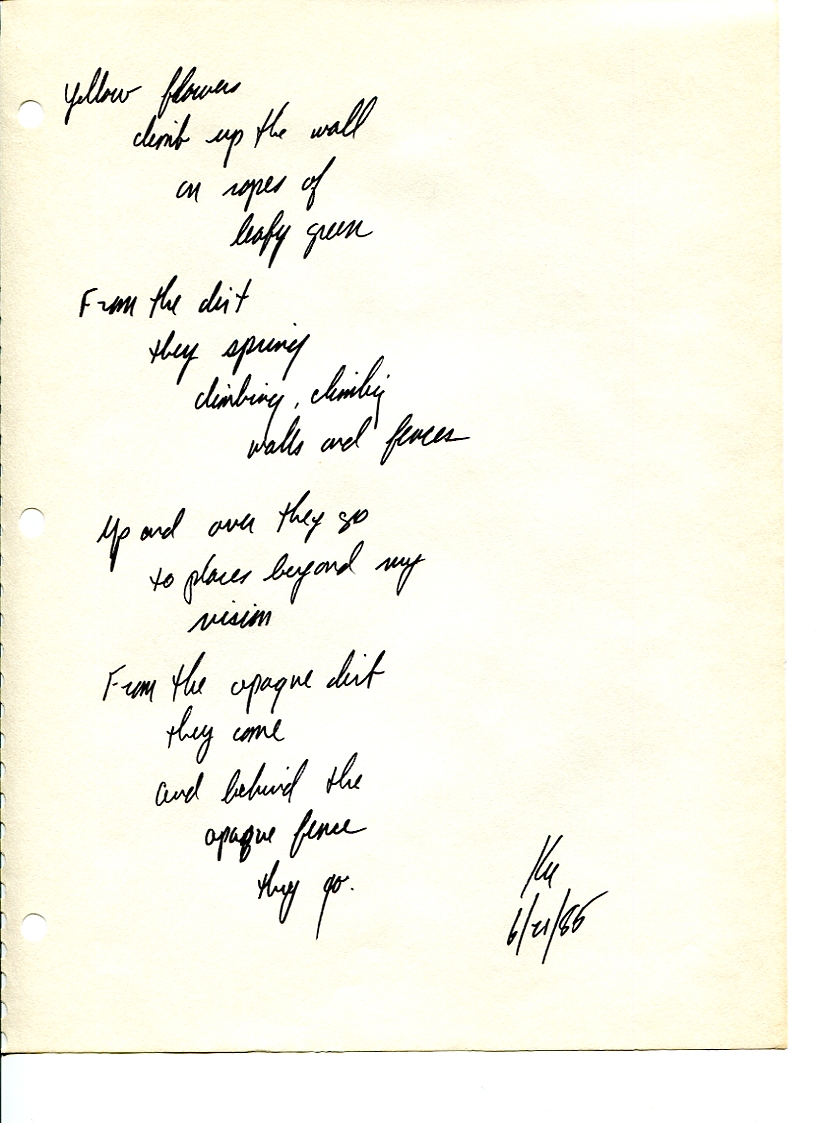 Yellow flowers
climb up the wall
on ropes of
leafy green
From the dirt
they spring
climbing, climbing
walls and fences
Up and over they go
to places beyond my
vision
From the opaque dirt
they come
and behind the
opaque fence
they go.